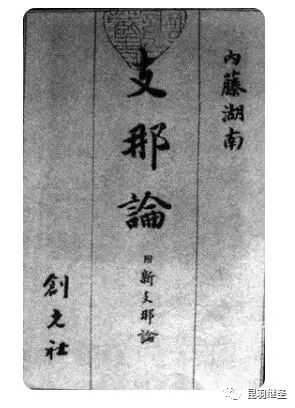 内藤湖南
支那論
附 新支那論
創元社
昆羽继圣